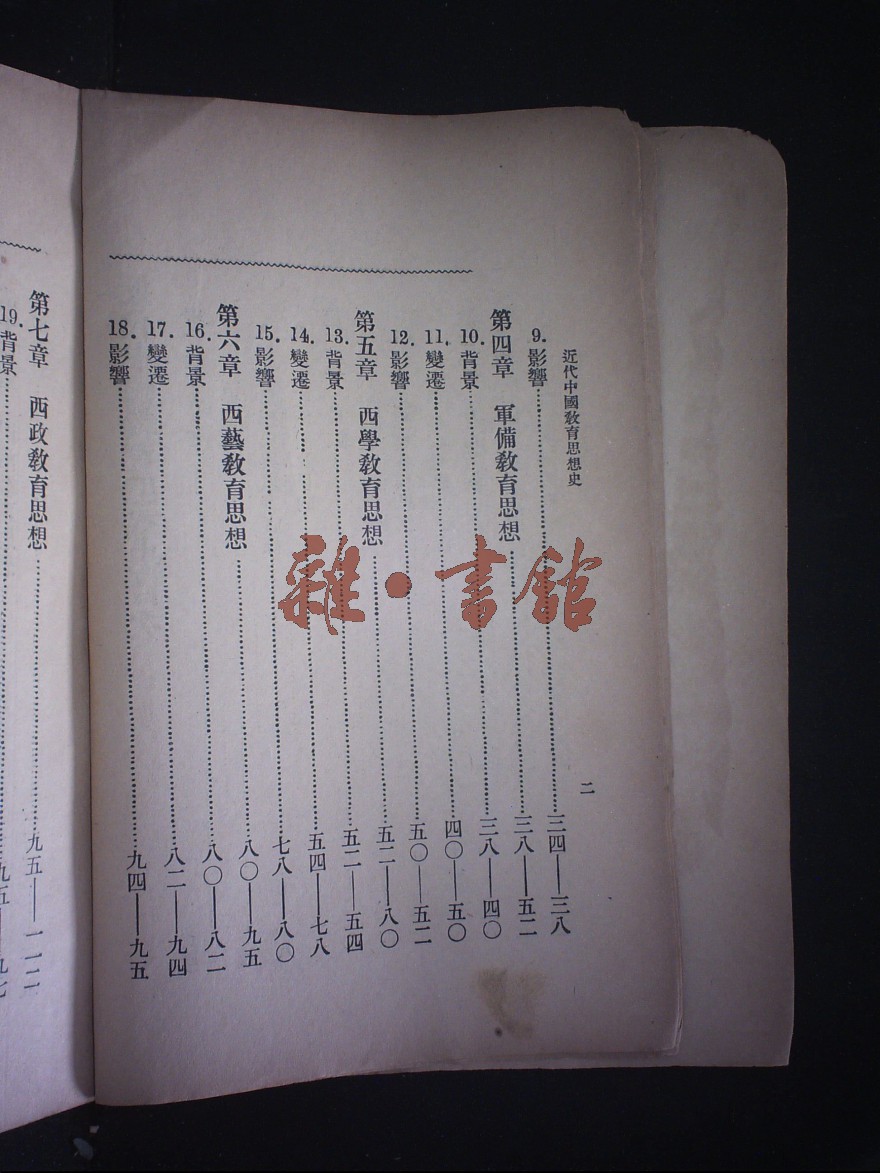 近代中國教育思想史
二
9. 影響………三四——三八
第四章　軍備教育思想………三八——五二
10. 背景………三八——四〇
11. 變遷………四〇——五〇
12. 影響………五〇——五二
第五章　西學教育思想………五二——八〇
13. 背景………五二——五四
14. 變遷………五四——七八
15. 影響………七八——八〇
第六章　西藝教育思想………八〇——九五
16. 背景………八〇——八二
17. 變遷………八二——九四
18. 影響………九四——九五
第七章　西政教育思想………九五——一一二
19. 背景………九五——九七
雜·書館